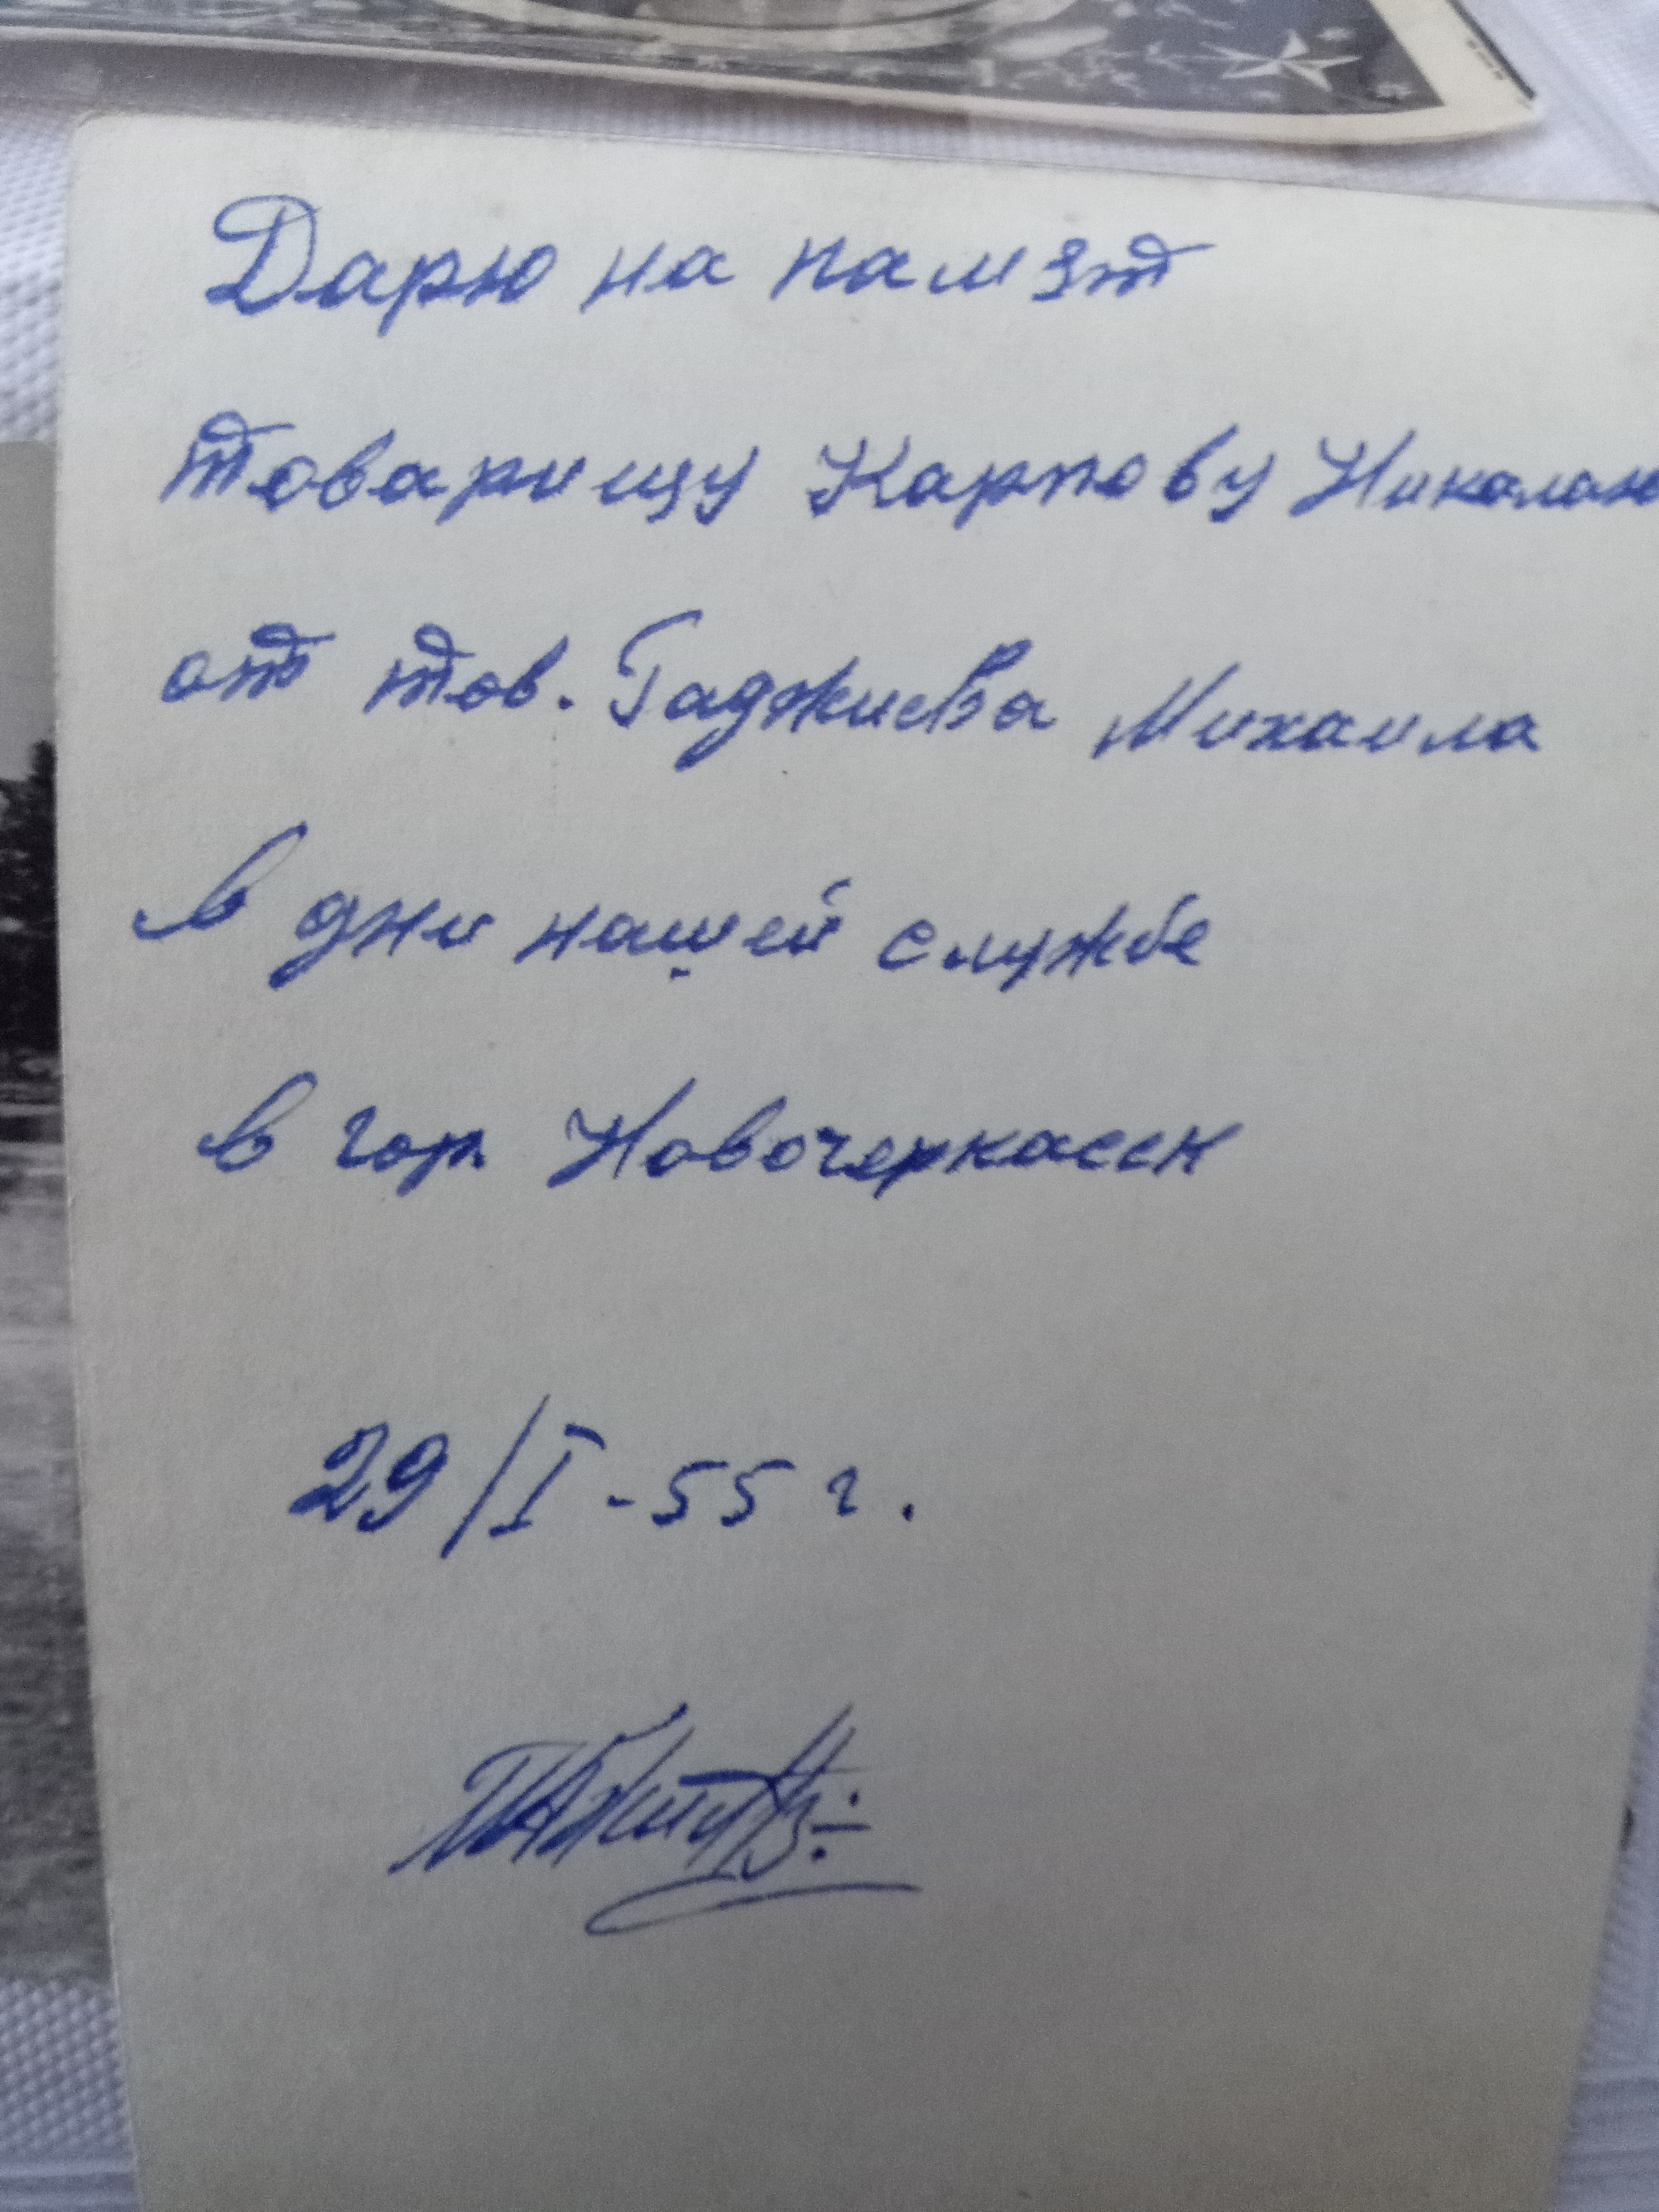 Дарю на памят
товарищу Карпову Николаю
от тов. Гаджиева Михаила
в дни нашей службе
в гор. Новочеркасск
29/I-55 г.